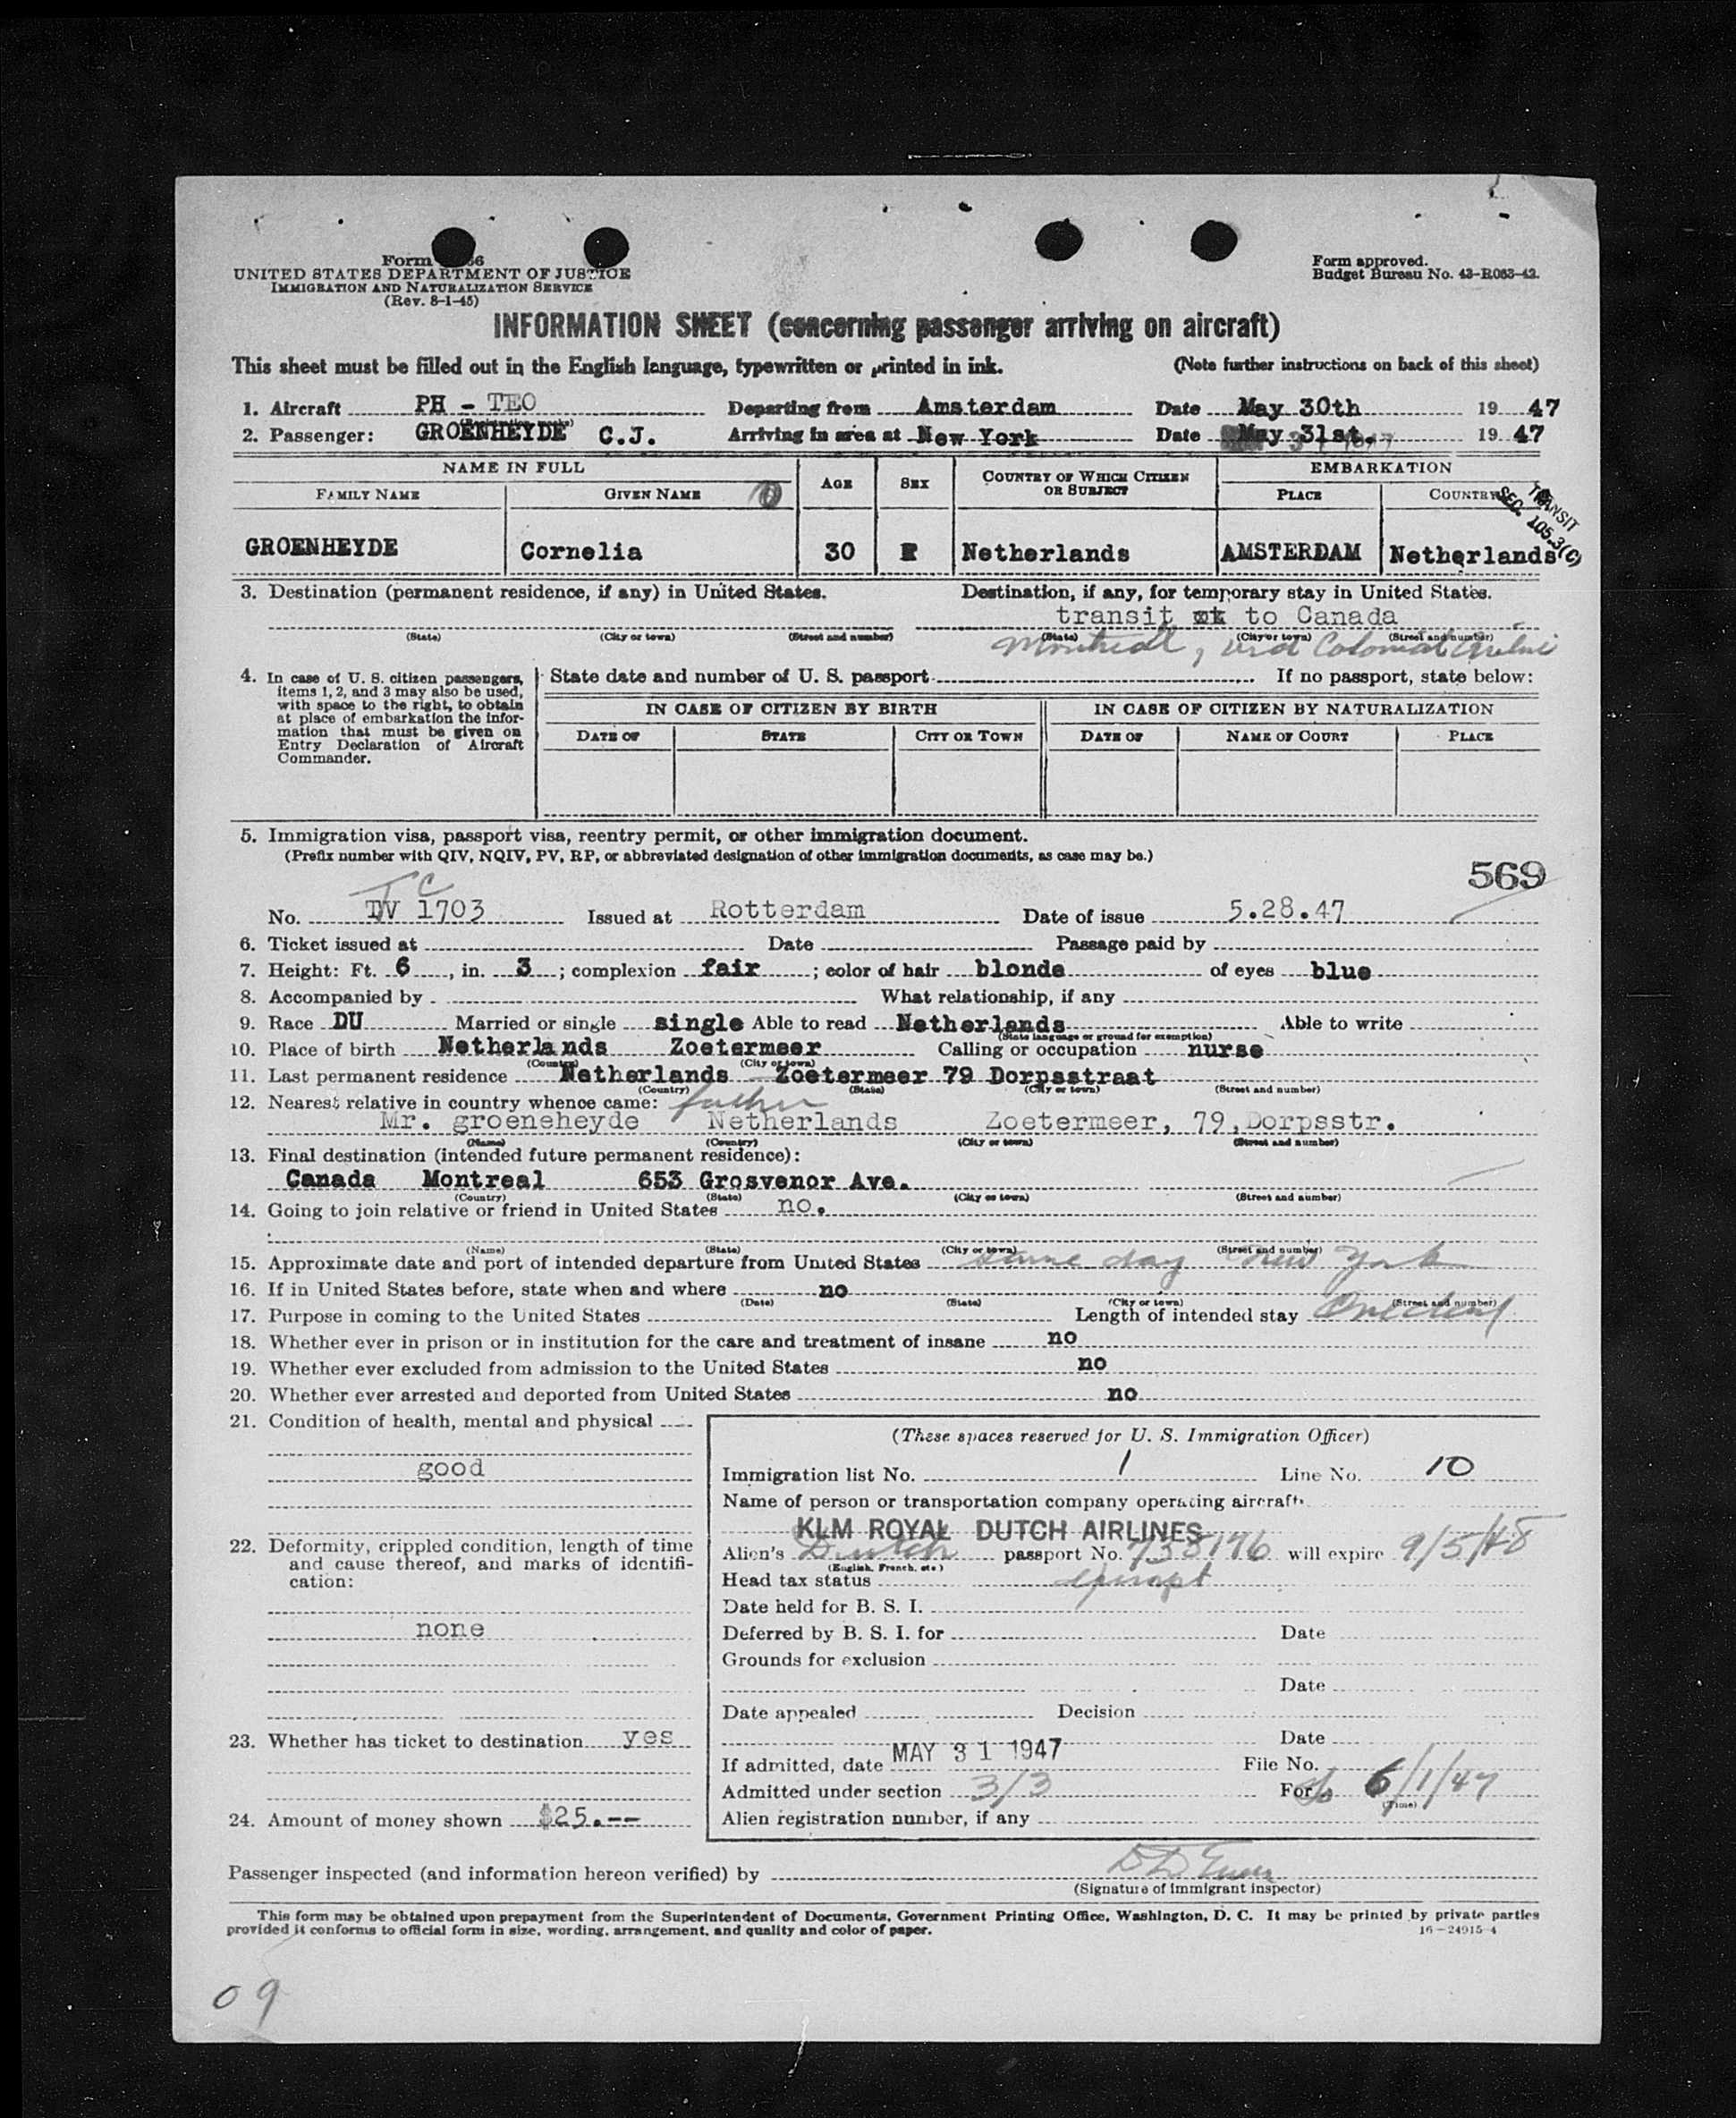 Form 66
UNITED STATES DEPARTMENT OF JUSTICE
IMMIGRATION AND NATURALIZATION SERVICE
(Rev. 8-1-45)
Form approved.
Budget Bureau No. 43-R063-42.
INFORMATION SHEET (concerning passenger arriving on aircraft)
This sheet must be filled out in the English language, typewritten or printed in ink. (Note further instructions on back of this sheet)
1. Aircraft PH - TEO Departing from Amsterdam Date May 30th 19 47
2. Passenger: GROENHEYDE C.J. Arriving in area at New York Date May 31st. 19 47
NAME IN FULL AGE SEX COUNTRY OF WHICH CITIZEN OR SUBJECT EMBARKATION
FAMILY NAME GIVEN NAME PLACE COUNTRY
TRANSIT
SEC. 105.3(C)
GROENHEYDE Cornelia 30 F Netherlands AMSTERDAM Netherlands
3. Destination (permanent residence, if any) in United States. Destination, if any, for temporary stay in United States.
transit to Canada
(State) (City or town) (Street and number) (State) (City or town) (Street and number)
Montreal, via Colonial Airline
4. In case of U. S. citizen passengers, items 1, 2, and 3 may also be used, with space to the right, to obtain at place of embarkation the information that must be given on Entry Declaration of Aircraft Commander.
State date and number of U. S. passport If no passport, state below:
IN CASE OF CITIZEN BY BIRTH IN CASE OF CITIZEN BY NATURALIZATION
DATE OF STATE CITY OR TOWN DATE OF NAME OF COURT PLACE
5. Immigration visa, passport visa, reentry permit, or other immigration document.
(Prefix number with QIV, NQIV, PV, RP, or abbreviated designation of other immigration documents, as case may be.)
569
TC
No. TV 1703 Issued at Rotterdam Date of issue 5.28.47
6. Ticket issued at Date Passage paid by
7. Height: Ft. 6, in. 3; complexion fair; color of hair blonde of eyes blue
8. Accompanied by What relationship, if any
9. Race DU Married or single single Able to read Netherlands Able to write
(State language or ground for exemption)
10. Place of birth Netherlands Zoetermeer Calling or occupation nurse
(Country) (City or town)
11. Last permanent residence Netherlands Zoetermeer 79 Dorpsstraat
(Country) (State) (City or town) (Street and number)
12. Nearest relative in country whence came: father
Mr. groeneheyde Netherlands Zoetermeer, 79,Dorpsstr.
(Name) (Country) (City or town) (Street and number)
13. Final destination (intended future permanent residence):
Canada Montreal 653 Grosvenor Ave.
(Country) (State) (City or town) (Street and number)
14. Going to join relative or friend in United States no.
(Name) (State) (City or town) (Street and number)
15. Approximate date and port of intended departure from United States same day New York
16. If in United States before, state when and where no
(Date) (State) (City or town) (Street and number)
17. Purpose in coming to the United States Length of intended stay One day
18. Whether ever in prison or in institution for the care and treatment of insane no
19. Whether ever excluded from admission to the United States no
20. Whether ever arrested and deported from United States no
21. Condition of health, mental and physical
good
22. Deformity, crippled condition, length of time and cause thereof, and marks of identification:
none
23. Whether has ticket to destination yes
24. Amount of money shown $25.--
(These spaces reserved for U. S. Immigration Officer)
Immigration list No. 1 Line No. 10
Name of person or transportation company operating aircraft
KLM ROYAL DUTCH AIRLINES
Alien's Dutch passport No. 738176 will expire 9/5/48
(English, French, etc.)
Head tax status exempt
Date held for B. S. I.
Deferred by B. S. I. for Date
Grounds for exclusion
Date
Date appealed Decision
Date
If admitted, date MAY 31 1947 File No.
Admitted under section 3/3 For 6/1/47
(Time)
Alien registration number, if any
Passenger inspected (and information hereon verified) by
(Signature of immigrant inspector)
This form may be obtained upon prepayment from the Superintendent of Documents, Government Printing Office, Washington, D. C. It may be printed by private parties
provided it conforms to official form in size, wording, arrangement, and quality and color of paper. 16-24915-4
09